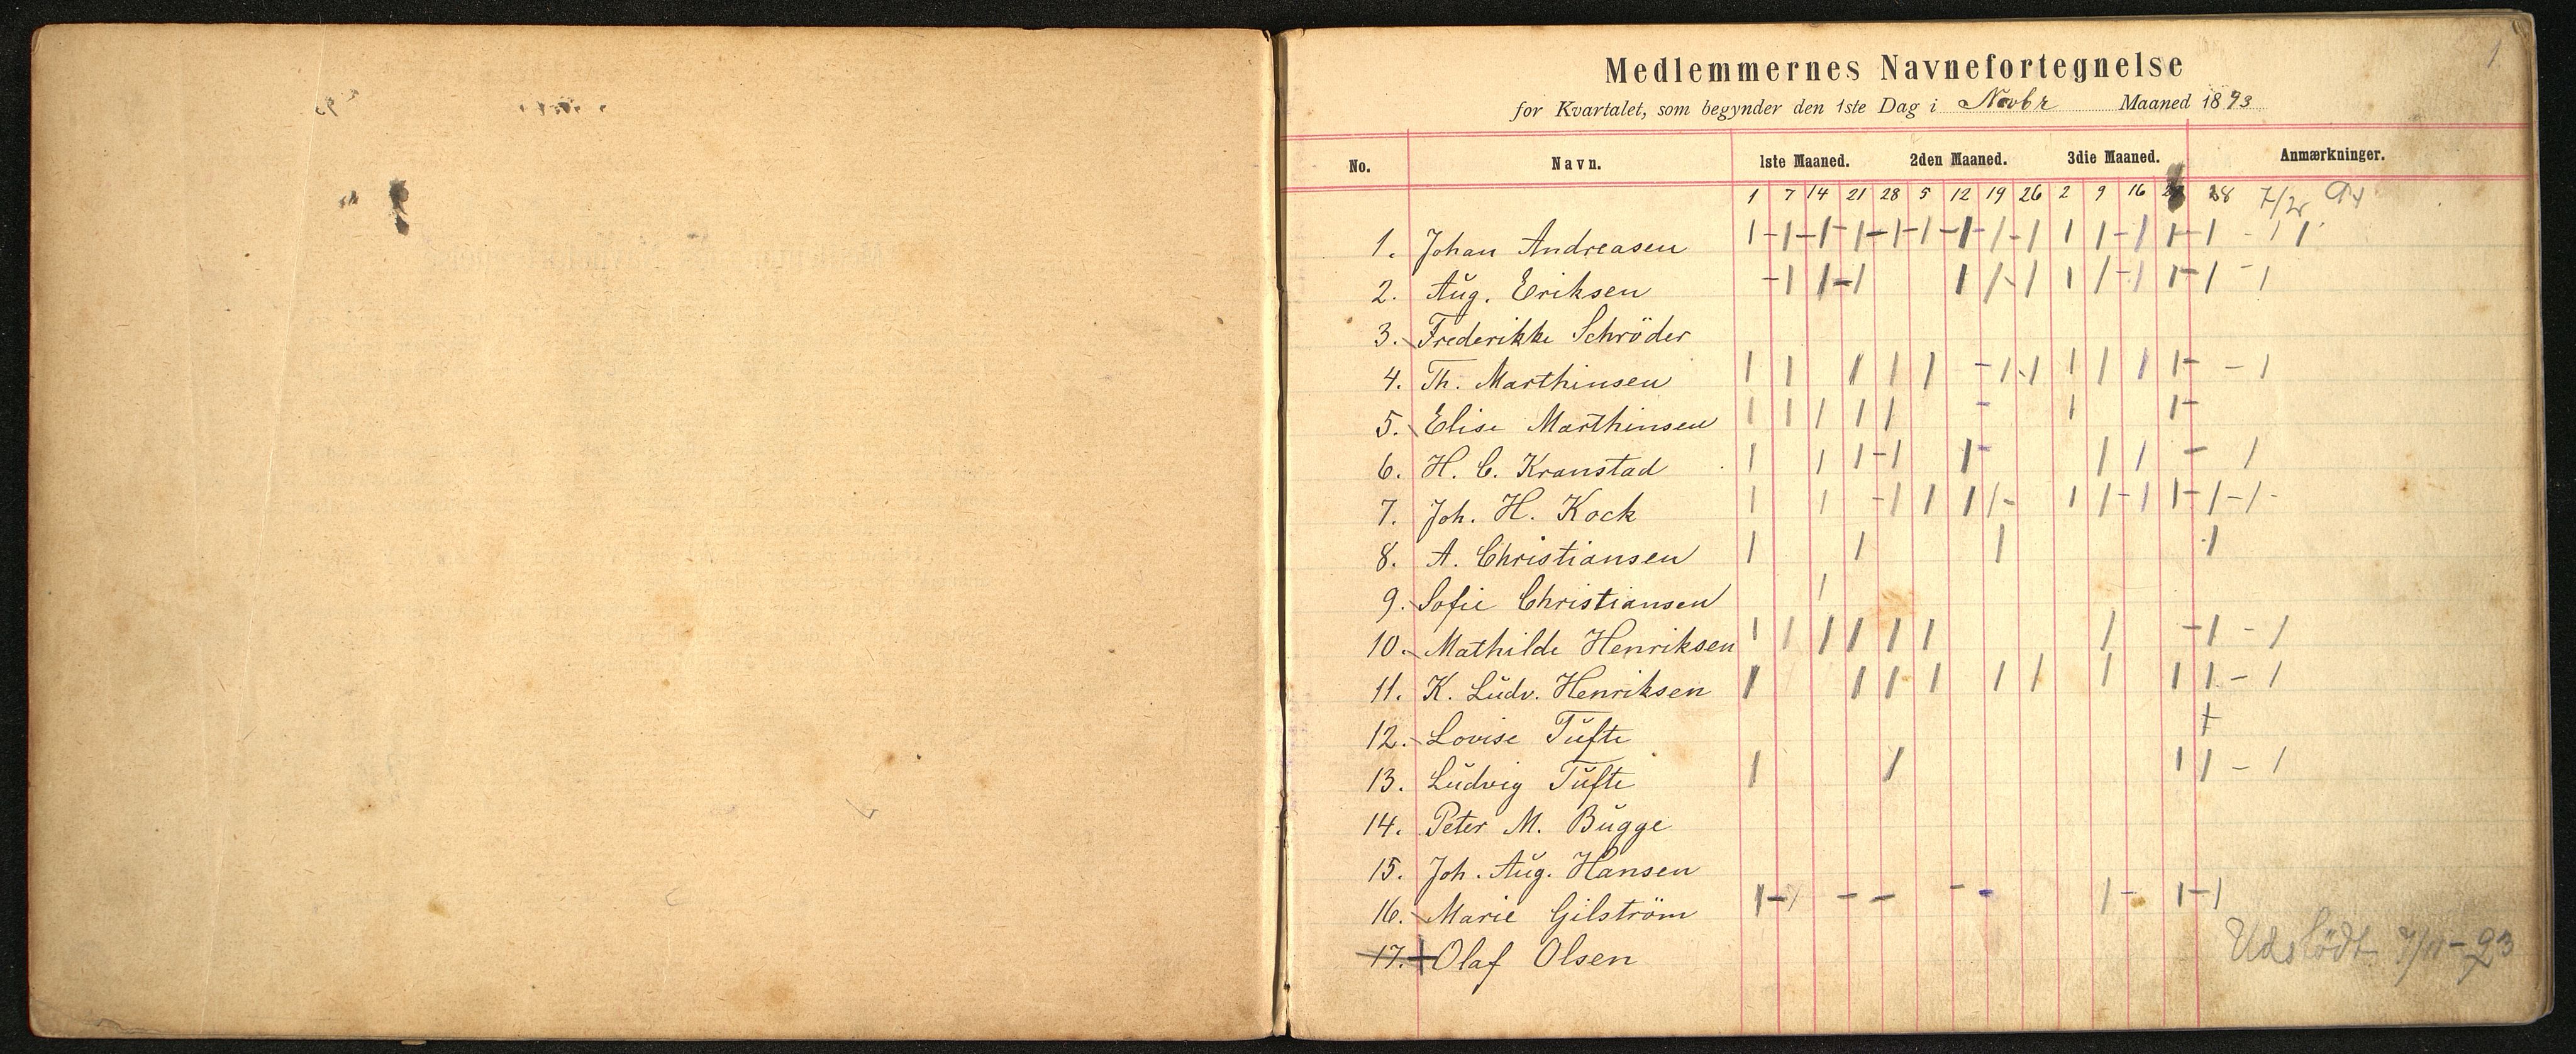 1
Medlemmernes Navnefortegnelse
for Kvartalet, som begynder den 1ste Dag i Novbr Maaned 1893
No. Navn. 1ste Maaned. 2den Maaned. 3die Maaned. Anmærkninger.
1 7 14 21 28 5 12 19 26 2 9 16 28 7/2 94
1. Johan Andreasen
2. Aug. Eriksen
3. Frederikke Schröder
4. Th. Marthinsen
5. Elise Marthinsen
6. H. C. Kranstad
7. Joh. H. Kock
8. A. Christiansen
9. Sofie Christiansen
10. Mathilde Henriksen
11. K. Ludv. Henriksen
12. Lovise Tufte
13. Ludvig Tufte
14. Peter M. Bugge
15. Joh. Aug. Hansen
16. Marie Gilström
17. Olaf Olsen Udslödt 7/11-93